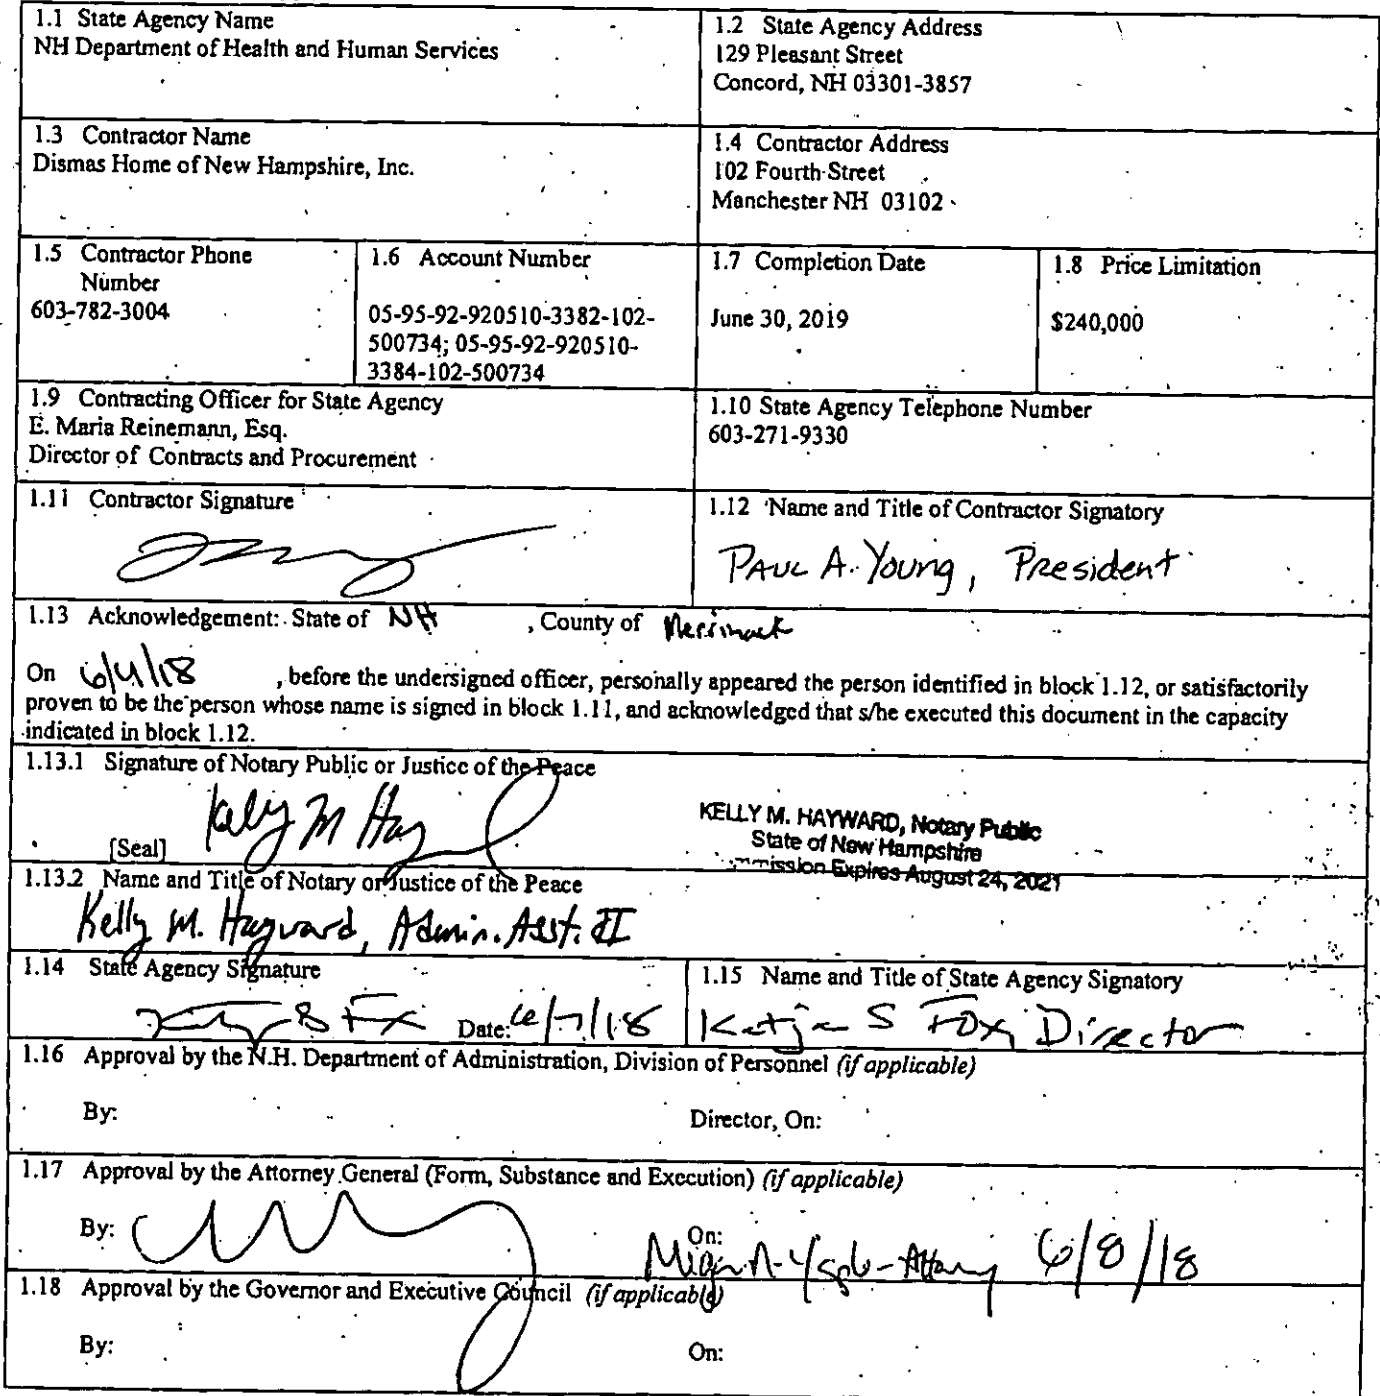 1.1 State Agency Name
NH Department of Health and Human Services
1.2 State Agency Address
129 Pleasant Street
Concord, NH 03301-3857
1.3 Contractor Name
Dismas Home of New Hampshire, Inc.
1.4 Contractor Address
102 Fourth Street
Manchester NH 03102
1.5 Contractor Phone
Number
603-782-3004
1.6 Account Number
05-95-92-920510-3382-102-
500734; 05-95-92-920510-
3384-102-500734
1.7 Completion Date
June 30, 2019
1.8 Price Limitation
$240,000
1.9 Contracting Officer for State Agency
E. Maria Reinemann, Esq.
Director of Contracts and Procurement
1.10 State Agency Telephone Number
603-271-9330
1.11 Contractor Signature
1.12 Name and Title of Contractor Signatory
Paul A. Young, President
1.13 Acknowledgement: State of NH , County of Merrimack
On 6/4/18 , before the undersigned officer, personally appeared the person identified in block 1.12, or satisfactorily
proven to be the person whose name is signed in block 1.11, and acknowledged that s/he executed this document in the capacity
indicated in block 1.12.
1.13.1 Signature of Notary Public or Justice of the Peace
Kelly M Hay
[Seal]
KELLY M. HAYWARD, Notary Public
State of New Hampshire
mission Expires August 24, 2021
1.13.2 Name and Title of Notary or Justice of the Peace
Kelly M. Hayward, Admin. Asst. II
1.14 State Agency Signature
Date: 6/7/18
1.15 Name and Title of State Agency Signatory
Katja S Fox, Director
1.16 Approval by the N.H. Department of Administration, Division of Personnel (if applicable)
By:
Director, On:
1.17 Approval by the Attorney General (Form, Substance and Execution) (if applicable)
By:
On:
6/8/18
1.18 Approval by the Governor and Executive Council (if applicable)
By:
On: